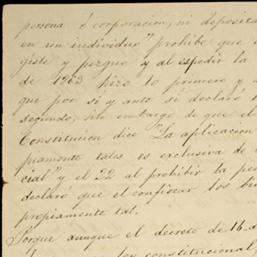 persona ó corporacion, ni deposita
en un individuo" prohibe que e
giste y porque y al espedir la
de 1863 hizo lo primero y
que por si y ante si declaró
segundo, sin embargo de que el
Constitucion dice "La aplicacion
piamente tales es exclusiva de
cial" y el 22 al prohibir la pe
declaró que el confiscar los bie
propiamente tal.
Porque aunque el decreto de 16 d
ley constitucional